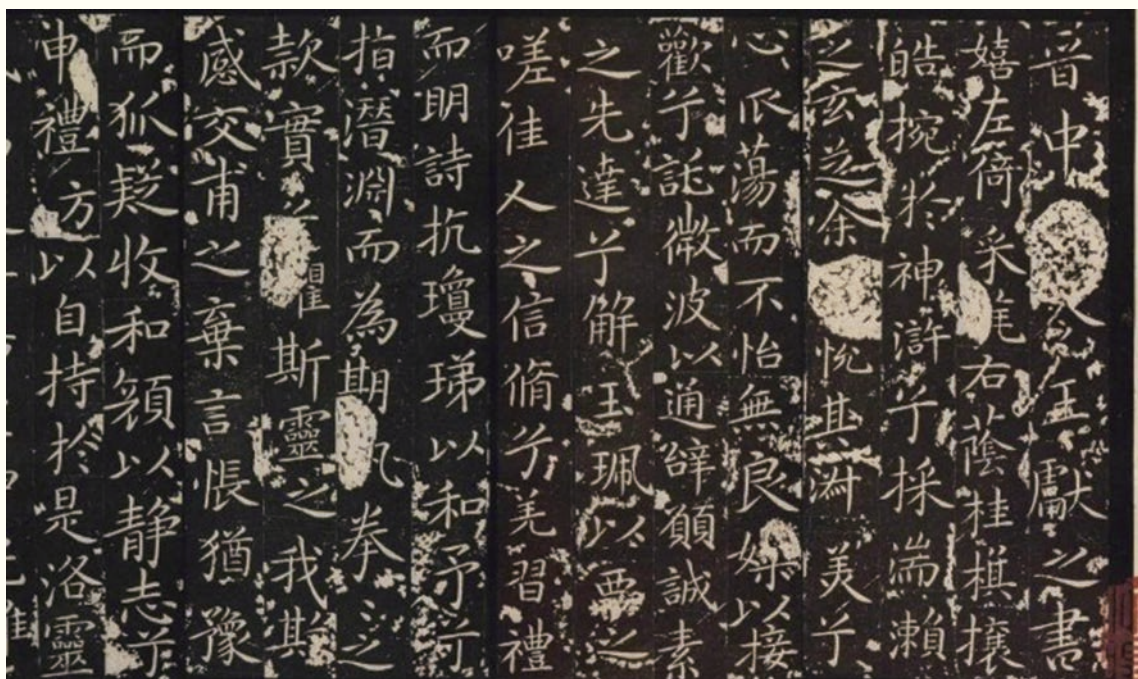 晉中王獻之書
嬉左倚采旄右蔭桂棋攘
皓捥於神滸兮採湍瀨
之玄芝余悅其淑美兮
心蕩而不怡無良媒以接
歡兮託微波以通辭願誠素
之先達兮解玉珮以要之
嗟佳人之信脩兮羌習禮
而明詩抗瓊珶以和予兮
指潛淵而為期奉之
款實懼斯靈之我欺
感交甫之棄言悵猶豫
而狐疑收和顏以靜志兮
申禮方以自持於是洛靈